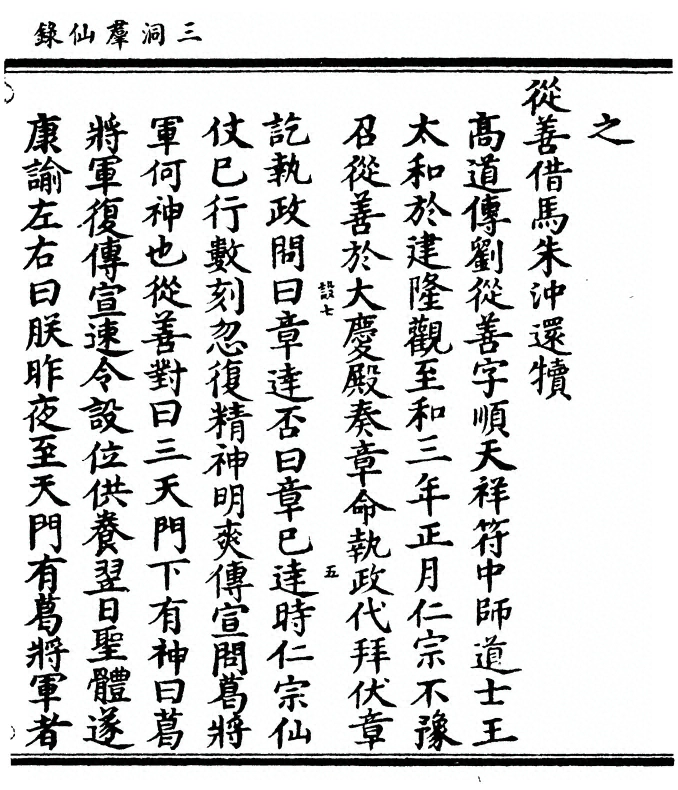 三洞羣仙錄
之
從善借馬朱沖還犢
高道傳劉從善字順天祥符中師道士王
太和於建隆觀至和三年正月仁宗不豫
召從善於大慶殿奏章命執政代拜伏章
設七
五
訖執政問曰章達否曰章已達時仁宗仙
仗已行數刻忽復精神明爽傳宣問葛將
軍何神也從善對曰三天門下有神曰葛
將軍復傳宣速令設位供養翌日聖體遂
康諭左右曰朕昨夜至天門有葛將軍者